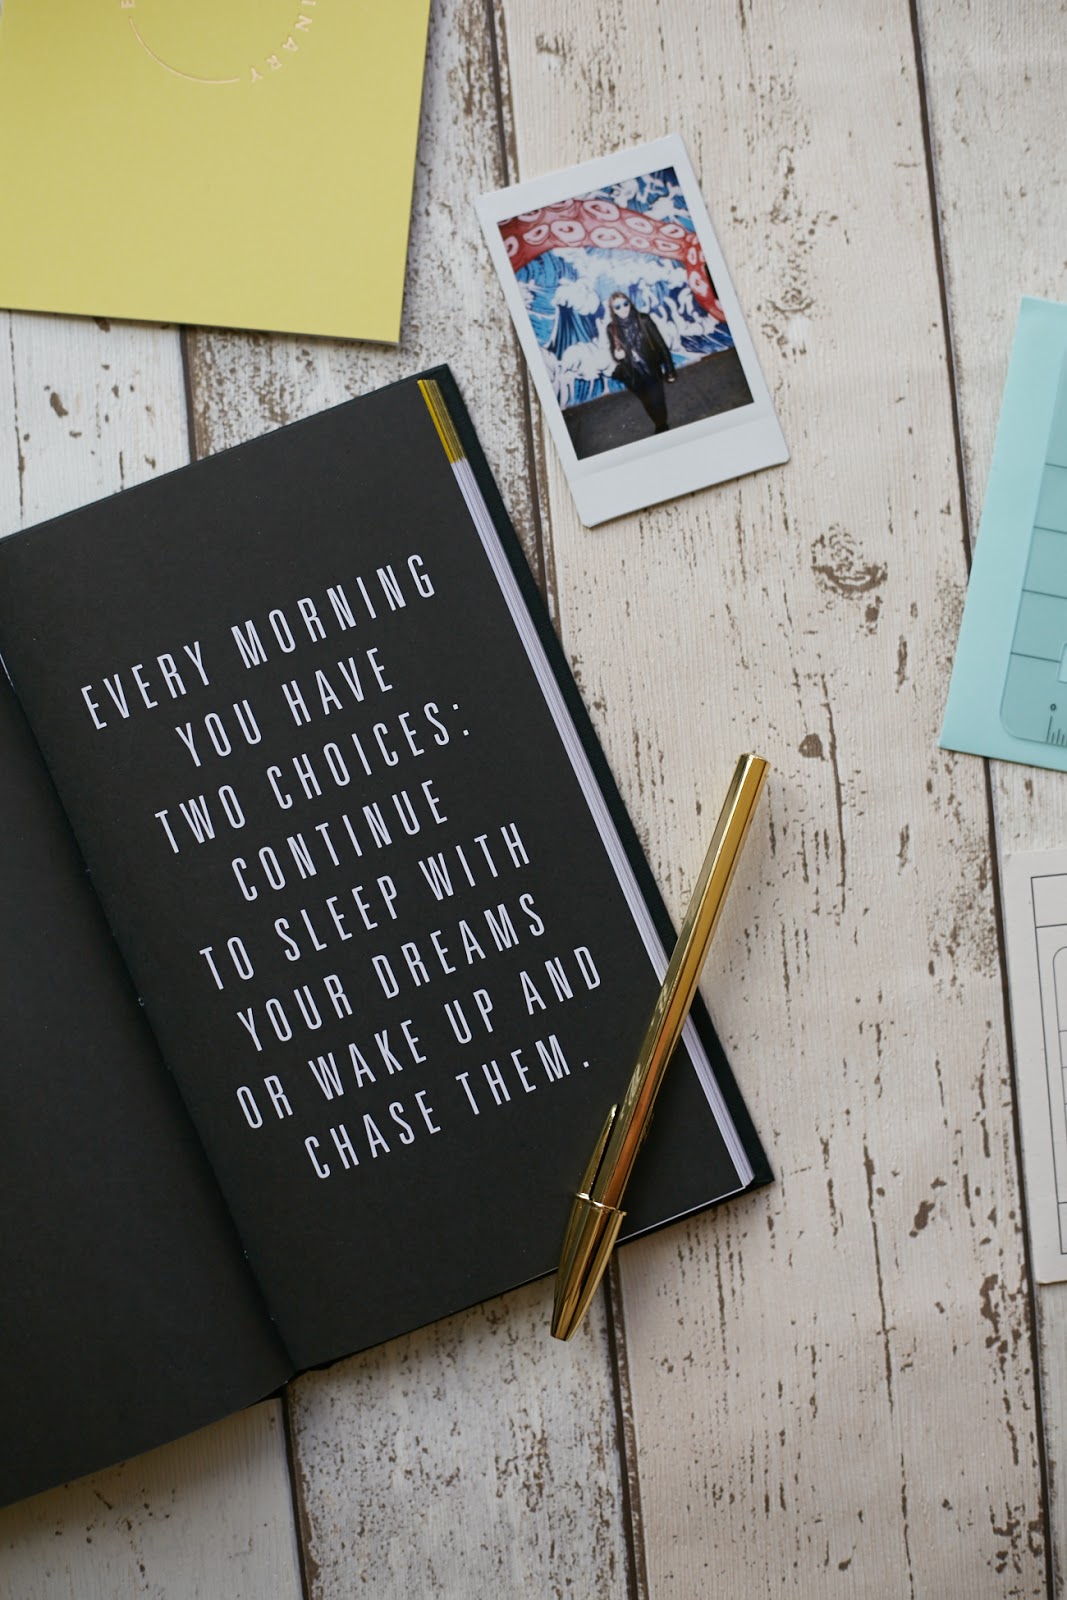 INARY
EVERY MORNING
YOU HAVE
TWO CHOICES:
CONTINUE
TO SLEEP WITH
YOUR DREAMS
OR WAKE UP AND
CHASE THEM.
0